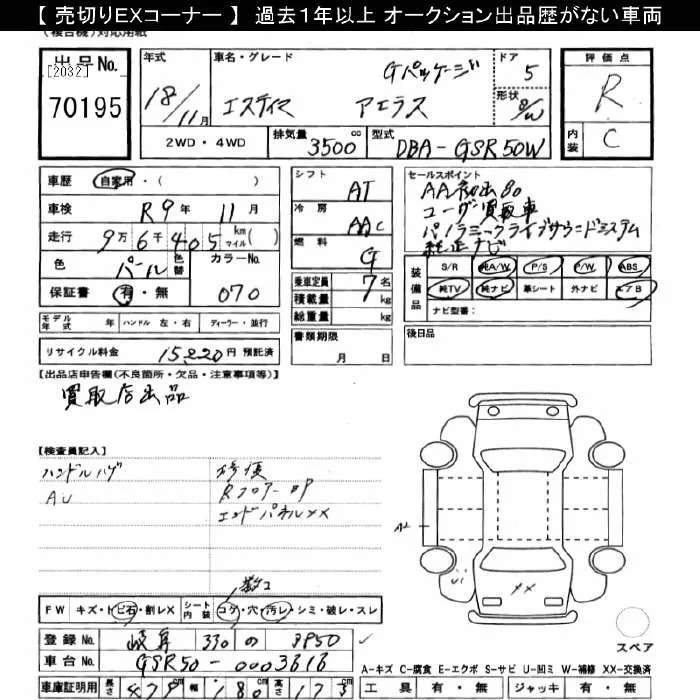 【 売切りEXコーナー 】 過去１年以上 オークション出品歴がない車両
(複合機)対応用紙
出品No.
[2032]
70195
年式
18/11月
車名・グレード
Gパッケージ
エスティマ アエラス
ドア
5
形状
評価点
R
内装
C
2WD・4WD
排気量
3500 cc
型式
DBA-GSR50W
車歴
自家用・( )
車検
R9年 11月
走行
9万6千405 km マイル( )
色
パール
色替
カラーNo.
070
保証書
有・無
シフト
AT
冷房
AAC
燃料
G
乗車定員
7名
積載量
kg
総重量
kg
セールスポイント
AA初出品
ユーザー買取車
パノラミックライブサウンドシステム
純正ナビ
装備品
S/R 純A/W P/S P/W ABS
純TV 純ナビ 革シート 外ナビ エアB
ナビ型番:
モデル年式 年 ハンドル 左・右 ディーラー・並行
リサイクル料金 15220円 預託済
書類期限
月 日
後日品
【出品店申告欄(不良箇所・欠品・注意事項等)】
買取店出品
【検査員記入】
ハンドルハゲ
AU
修復
Rフロアー
エンドパネルXX
A2
U1
XX
FW キズ・トビ石・割レX
シート内装 コゲ・穴・汚レ・シミ・破レ・スレ
登録No.
岐阜 330 の 3950
車台No.
GSR50-0003616
スペア
A-キズ C-腐食 E-エクボ S-サビ U-凹ミ W-補修 XX-交換済
車庫証明用 長さ 479 幅 180 高さ 173
工具 有・無 ジャッキ 有・無